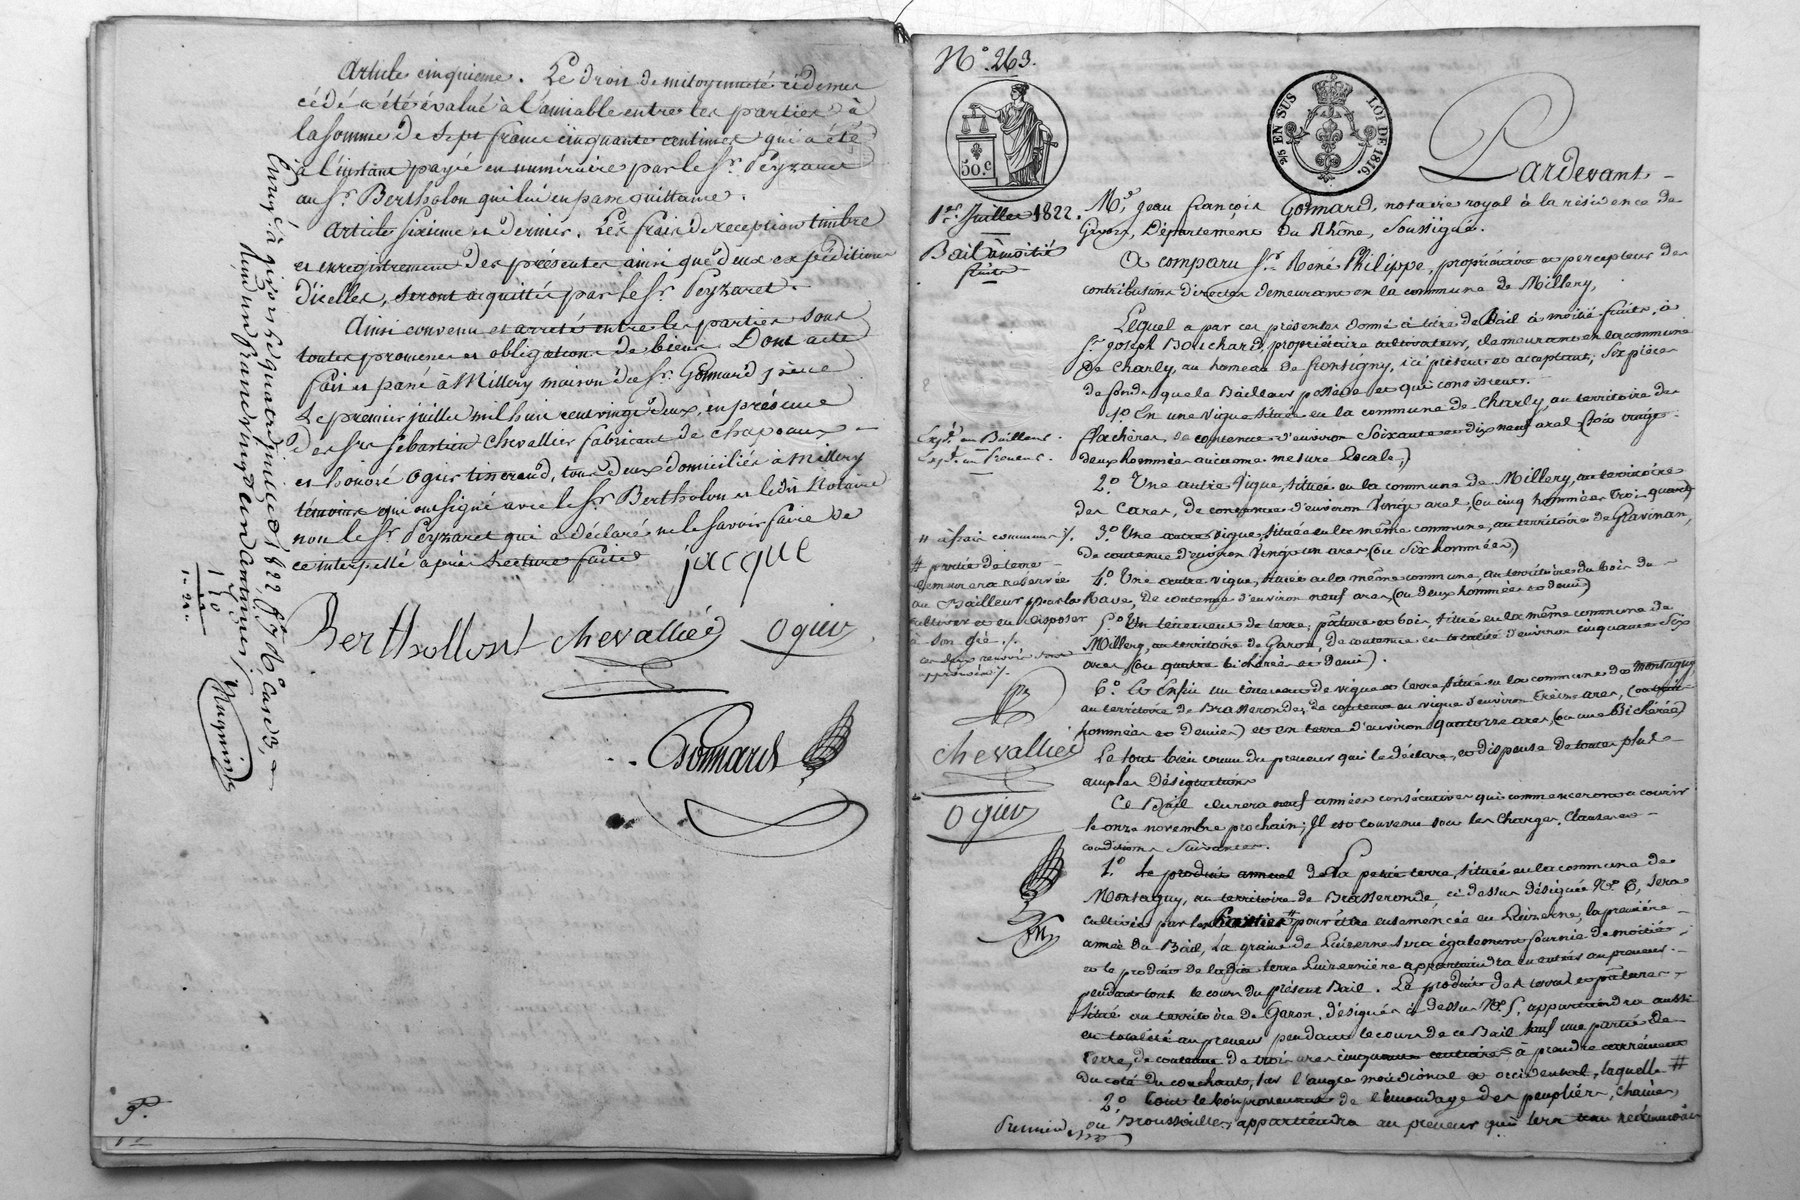 Article cinquieme. Le droit de mitoyenneté cédemus
cédé a été évalué à l'amiable entre les parties à
la somme de Sept francs cinquante centimes qui a été
à l'instant payée en numéraire par le Sr. Peyzaret
au Sr. Bertholon qui lui en passe quittance.
Article Sixieme et dernier. Les frais de reception timbre
et enregistrement des présentes ainsi que deux expéditions
d'icelles, seront acquittés par le Sr. Peyzaret.
Ainsi convenu et arreté entre les parties sous
toutes promesses et obligations de biens. Dont acte
fait et passé à Millery maison du Sr. Gonnard frère
Le premier juillet mil huit cent vingt deux, en présence
des Srs Sébastien Chevallier fabricant de Chapeaux
et honoré Ogier tisserand, tous deux domiciliés à Millery
témoins qui ont signé avec le Sr. Bertholon et ledit Notaire
non le Sr. Peyzaret qui a déclaré ne le savoir faire de
ce interpellé après Lecture faite jacque
Berthollont chevallier ogier
Gonnard
Enreg. à givors le quatre juillet 1822, fo. 76, case 3,
Reçu un franc vingt deux centimes
No. 263.
50.c
25 EN SUS LOI DE 1816.
Pardevant
1er. Juillet 1822.
Bail à moitié
fruits
Mr. jean françois Gonnard, notaire royal à la résidence de
Givors, Département du Rhône, Soussigné.
A comparu Sr. René Philippe, propriétaire et percepteur des
contributions directes demeurant en la commune de Millery,
Lequel a par ces présentes donné à titre de Bail à moitié fruits, à
Sr. joseph Bouchard, propriétaire cultivateur, demeurant en la commune
de Charly, au hameau de frontigny, ici présent et acceptant, Six pièces
de fonds que le Bailleur possède et qui consistent.
1o. En une vigne située en la commune de Charly, au territoire des
flachères, de contenue d'environ Soixante et dix neuf ares (ou vingt
deux hommées ancienne mesure Locale;)
Expd. au Bailleur.
Expd. au Preneur.
2o. Une autre Vigne, située en la commune de Millery, au territoire
des Cares, de contenue d'environ Vingt ares, (ou cinq hommées trois quarts)
3o. Une autre vigne, située en la même commune, au territoire de Gravinan,
de contenue d'environ Vingt un ares (ou Six hommées,)
4o. Une autre vigne, située en la même commune, au territoire du bois du
Rave, de contenue d'environ neuf ares (ou deux hommées et demi)
5o. Un tènement de terre, pâture et bois, situé en la même commune de
Millery, au territoire de Garon, de contenue en totalité d'environ cinquante Six
ares (ou quatre bicherées et demi).
6o. Et Enfin un tènement de vigne et terre situé en la commune de Montagny
au territoire de Brasseronde, de contenue en vigne d'environ Treize ares, (ou trois
hommées et demies) et en terre d'environ quatorze ares, (ou une Bicherée)
Le tout bien connu du preneur qui le déclare, et dispense de toutes plus
amples Désignations
Ce Bail durera neuf années consécutives qui commenceront à courir
le onze novembre prochain; Il est convenu sous les Charges, Clauses et
conditions Suivantes.
1o. Le produit annuel de La petite terre, située en la commune de
Montagny, au territoire de Brasseronde, ci dessus désignée No. 6, sera
cultivée par les parties # pour être ensemencée en Luizerne, la première
année du Bail, La graine de Luizerne sera également fournie de moitié,
et le produit de ladite terre Luizernière appartiendra en entier au preneur
pendant tout le cours du présent Bail. Le produit des terres et pâtures
situé au territoire de Garon, désignés ci dessus No. 5, appartiendra aussi
en totalité au preneur pendant le cours de ce Bail sauf une partie de
terre, de contenue de trois ares cinquante centiares à prendre carrément
du coté du couchant, sur l'angle méridional et occidental, laquelle #
2o. tout le bon provenant de l'émondage des peupliers, chênes,
ou Broussailles appartiendra au preneur qui sera tenu
" à frais communs ./.
# partie de terre
demeurera réservée
au Bailleur pour la
cultiver et en disposer
à son gré ./.
ces deux renvois sont
approuvés ./.
chevallier
ogier